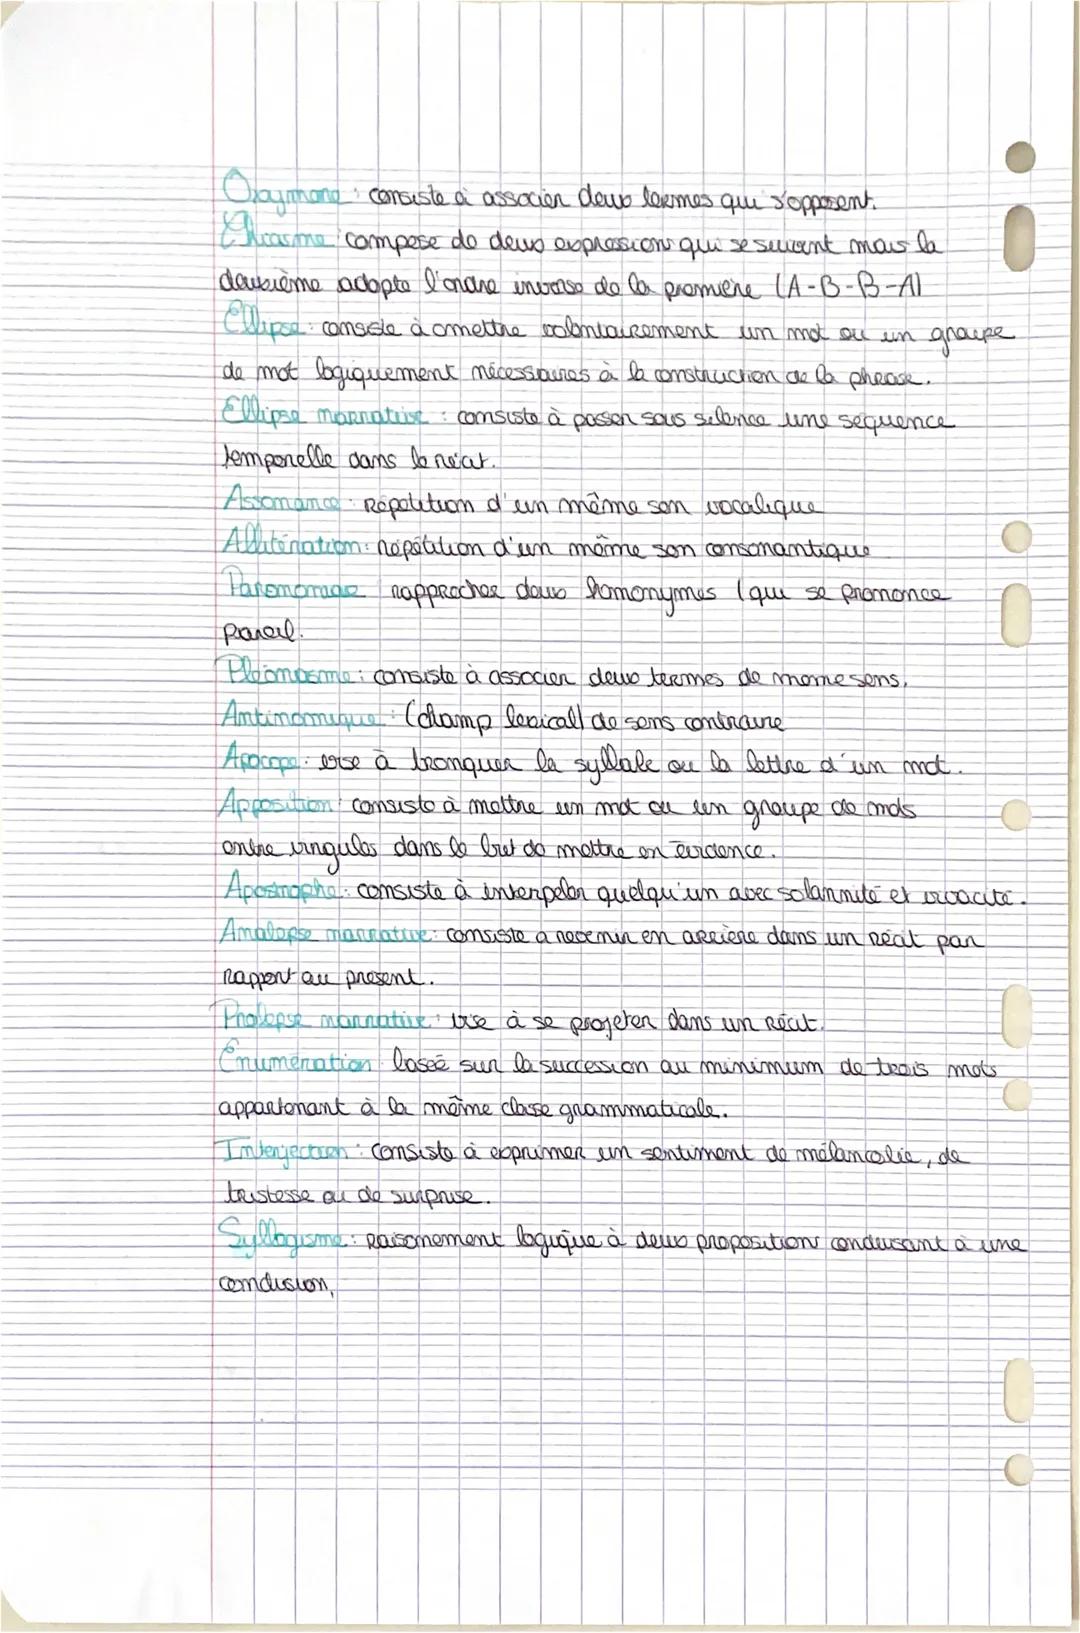 Oxymore : consiste à associer deux termes qui s'opposent.
Chiasme : compose de deux expressions qui se suivent mais la
deuxième adopte l'ordre inverse de la première (A-B-B-A)
Ellipse : consiste à omettre volontairement un mot ou un groupe
de mot logiquement nécessaires à la construction de la phrase.
Ellipse narrative : consiste à passer sous silence une séquence
temporelle dans le récit.
Assonance : Répétition d'un même son vocalique
Allitération : répétition d'un même son consonantique
Paronomase rapprocher deux homonymes (qui se prononce
pareil.
Pléonasme : consiste à associer deux termes de même sens.
Antinomique : (champ lexical) de sens contraire
Apocope : vise à tronquer la syllabe ou la lettre d'un mot.
Apposition : consiste à mettre un mot ou un groupe de mots
entre virgules dans le but de mettre en évidence.
Apostrophe : consiste à interpeler quelqu'un avec solannité et vivacité.
Analepse narrative : consiste à revenir en arrière dans un récit par
rapport au présent.
Prolepse narrative : vise à se projeter dans un récit.
Énumération : basée sur la succession au minimum de trois mots
appartenant à la même classe grammaticale.
Interjection : consiste à exprimer un sentiment de mélancolie, de
tristesse ou de surprise.
Syllogisme : Raisonnement logique à deux propositions conduisant à une
conclusion,